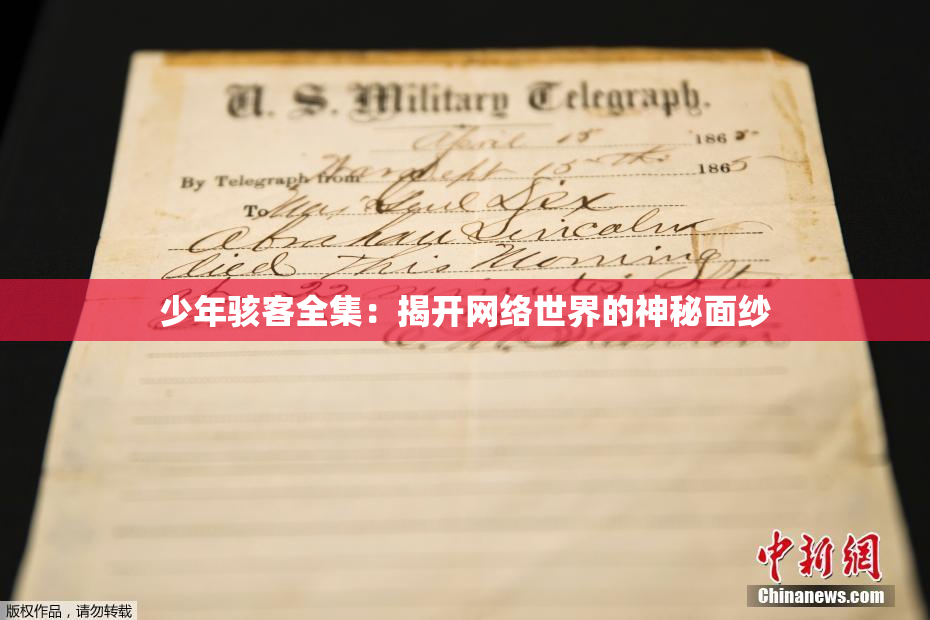 U. S. Military Telegraph.
April 15 1865
By Telegraph from War Dept 15th 1865
To Maj Genl Dix
Abraham Lincoln
died This Morning
at 22 minutes after
少年骇客全集：揭开网络世界的神秘面纱
E. M. Stanton
中新网
Chinanews.com
版权作品，请勿转载